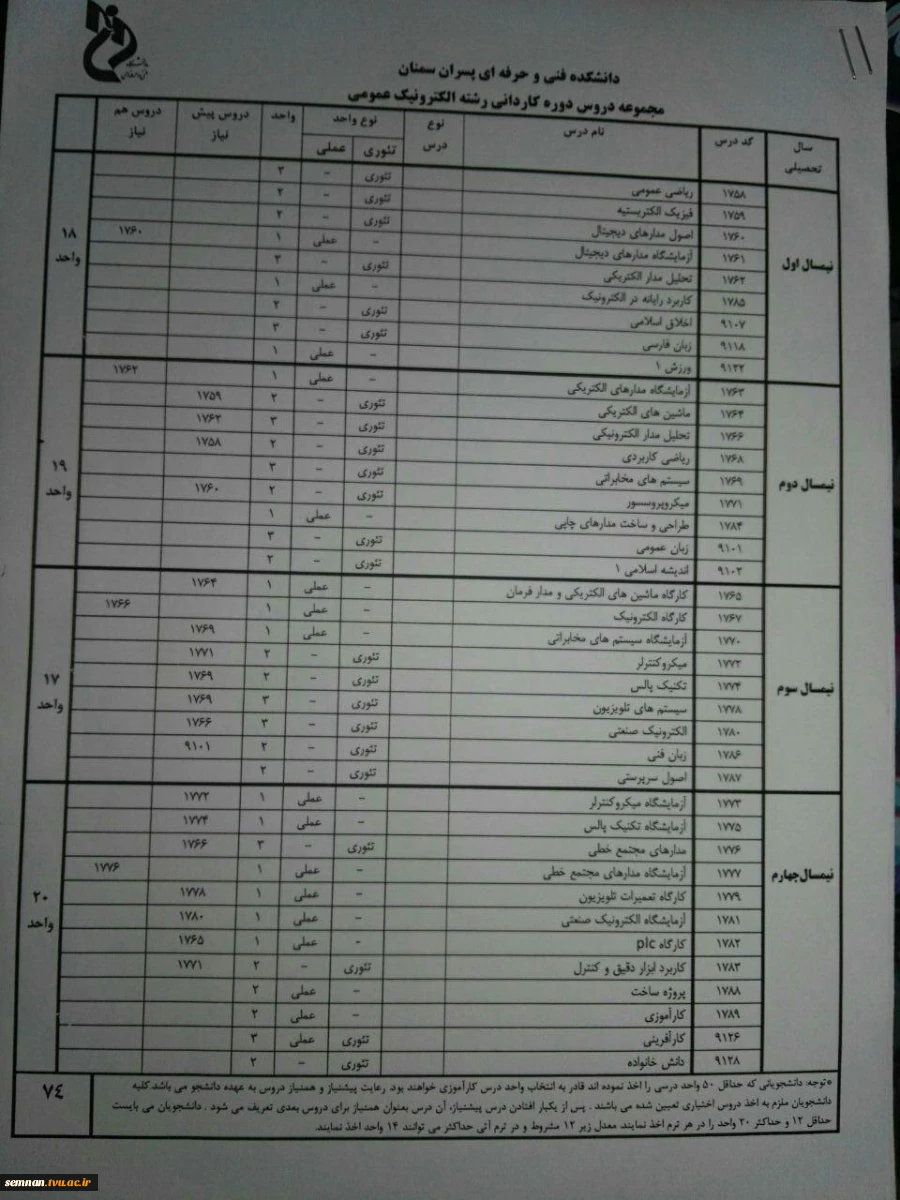 دانشکده فنی و حرفه ای پسران سمنان
مجموعه دروس دوره کاردانی رشته الکترونیک عمومی
سال تحصیلی کد درس نام درس نوع درس نوع واحد تئوری عملی واحد دروس پیش نیاز دروس هم نیاز
نیمسال اول
۱۷۵۸ ریاضی عمومی تئوری - ۳
۱۷۵۹ فیزیک الکتریسیته تئوری - ۲
۱۷۶۰ اصول مدارهای دیجیتال تئوری - ۲
۱۷۶۱ آزمایشگاه مدارهای دیجیتال - عملی ۱ ۱۷۶۰
۱۷۶۲ تحلیل مدار الکتریکی تئوری - ۳
۱۷۸۵ کاربرد رایانه در الکترونیک - عملی ۱
۹۱۰۷ اخلاق اسلامی تئوری - ۲
۹۱۱۸ زبان فارسی تئوری - ۳
۹۱۲۲ ورزش ۱ - عملی ۱
۱۸ واحد
نیمسال دوم
۱۷۶۳ آزمایشگاه مدارهای الکتریکی - عملی ۱ ۱۷۶۲
۱۷۶۴ ماشین های الکتریکی تئوری - ۲ ۱۷۵۹
۱۷۶۶ تحلیل مدار الکترونیکی تئوری - ۳ ۱۷۶۲
۱۷۶۸ ریاضی کاربردی تئوری - ۲ ۱۷۵۸
۱۷۶۹ سیستم های مخابراتی تئوری - ۳
۱۷۷۱ میکروپروسسور تئوری - ۲ ۱۷۶۰
۱۷۸۴ طراحی و ساخت مدارهای چاپی - عملی ۱
۹۱۰۱ زبان عمومی تئوری - ۳
۹۱۰۳ اندیشه اسلامی ۱ تئوری - ۲
۱۹ واحد
نیمسال سوم
۱۷۶۵ کارگاه ماشین های الکتریکی و مدار فرمان - عملی ۱ ۱۷۶۴
۱۷۶۷ کارگاه الکترونیک - عملی ۱ ۱۷۶۶
۱۷۷۰ آزمایشگاه سیستم های مخابراتی - عملی ۱ ۱۷۶۹
۱۷۷۲ میکروکنترلر تئوری - ۲ ۱۷۷۱
۱۷۷۴ تکنیک پالس تئوری - ۲ ۱۷۶۹
۱۷۷۸ سیستم های تلویزیون تئوری - ۳ ۱۷۶۹
۱۷۸۰ الکترونیک صنعتی تئوری - ۳ ۱۷۶۶
۱۷۸۶ زبان فنی تئوری - ۲ ۹۱۰۱
۱۷۸۷ اصول سرپرستی تئوری - ۲
۱۷ واحد
نیمسال چهارم
۱۷۷۳ آزمایشگاه میکروکنترلر - عملی ۱ ۱۷۷۲
۱۷۷۵ آزمایشگاه تکنیک پالس - عملی ۱ ۱۷۷۴
۱۷۷۶ مدارهای مجتمع خطی تئوری - ۳ ۱۷۶۶
۱۷۷۷ آزمایشگاه مدارهای مجتمع خطی - عملی ۱ ۱۷۷۶
۱۷۷۹ کارگاه تعمیرات تلویزیون - عملی ۱ ۱۷۷۸
۱۷۸۱ آزمایشگاه الکترونیک صنعتی - عملی ۱ ۱۷۸۰
۱۷۸۲ کارگاه plc - عملی ۱ ۱۷۶۵
۱۷۸۳ کاربرد ابزار دقیق و کنترل تئوری - ۲ ۱۷۷۱
۱۷۸۸ پروژه ساخت - عملی ۲
۱۷۸۹ کارآموزی - عملی ۲
۹۱۲۶ کارآفرینی تئوری عملی ۳
۹۱۲۸ دانش خانواده تئوری - ۲
۲۰ واحد
*توجه: دانشجویانی که حداقل ۵۰ واحد درسی را اخذ نموده اند قادر به انتخاب واحد درس کارآموزی خواهند بود. رعایت پیشنیاز و همنیاز دروس به عهده دانشجو می باشد.کلیه
دانشجویان ملزم به اخذ دروس اختیاری تعیین شده می باشند . پس از یکبار افتادن درس پیشنیاز، آن درس بعنوان همنیاز برای دروس بعدی تعریف می شود . دانشجویان می بایست
حداقل ۱۲ و حداکثر ۲۰ واحد را در هر ترم اخذ نمایند. معدل زیر ۱۲ مشروط و در ترم آتی حداکثر می توانند ۱۴ واحد اخذ نمایند.
۷۴
semnan.tvu.ac.ir